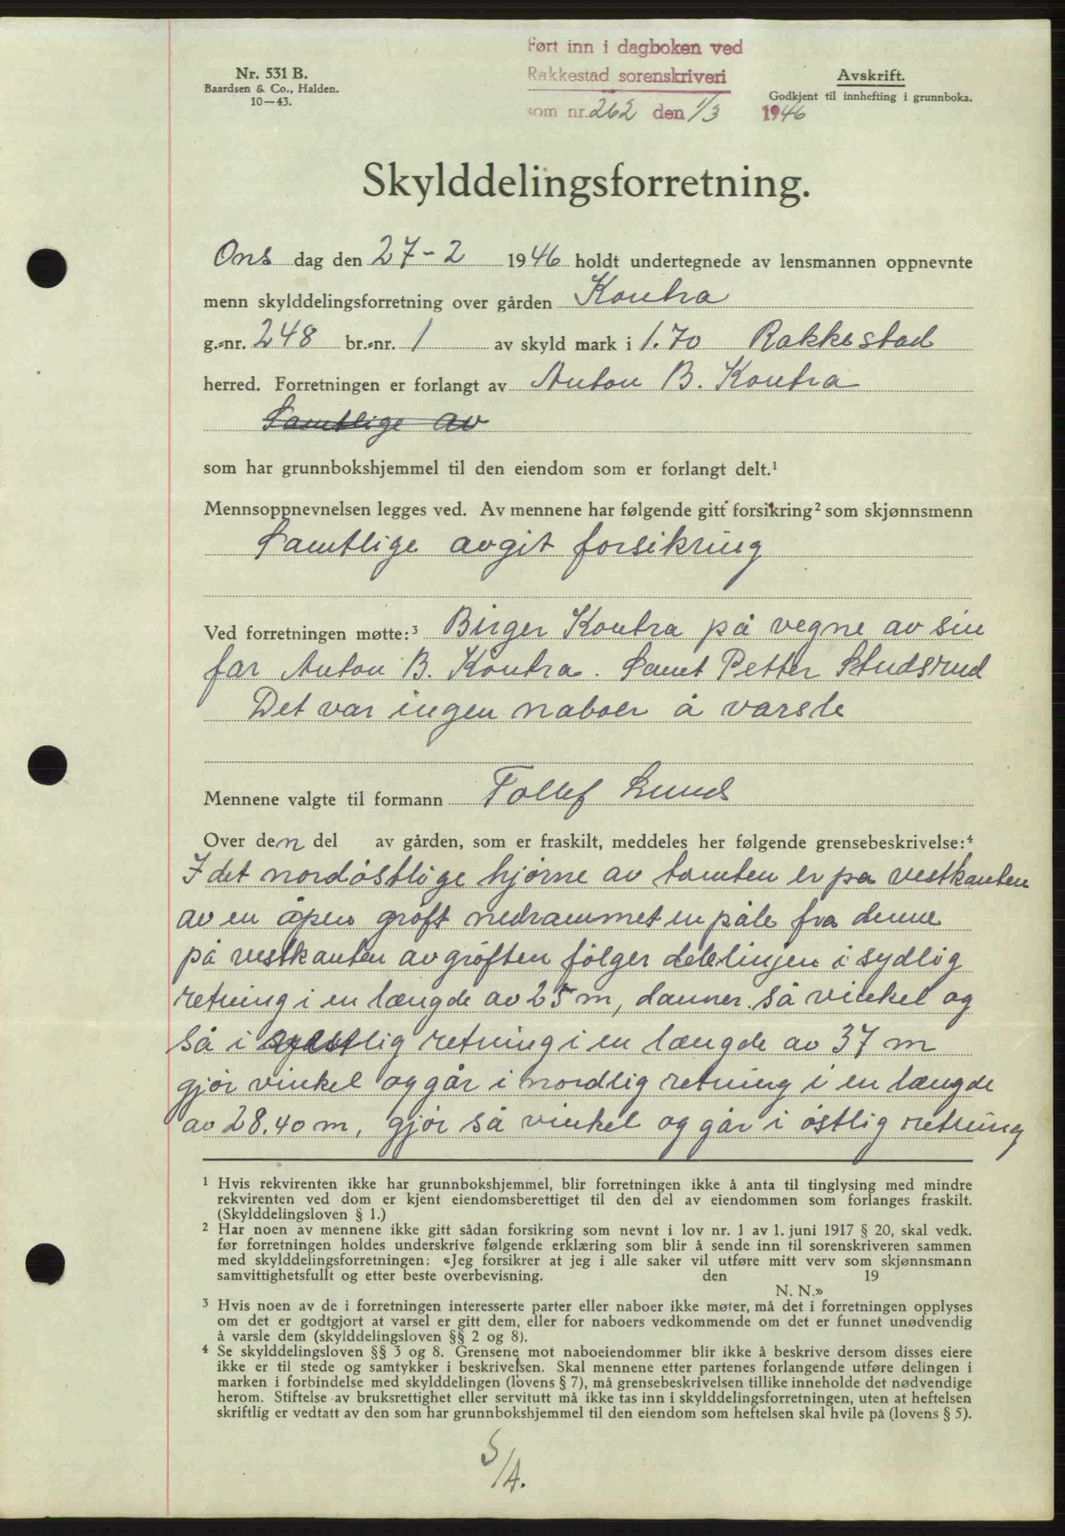 Ført inn i dagboken ved
Rakkestad sorenskriveri
som nr. 262 den 1/3 1946
Nr. 531 B.
Baardsen & Co., Halden.
10—43.
Avskrift.
Godkjent til innhefting i grunnboka.
Skylddelingsforretning.
Ons dag den 27-2 1946 holdt undertegnede av lensmannen oppnevnte
menn skylddelingsforretning over gården Kontra
g.-nr. 248 br.-nr. 1 av skyld mark i 1.70 Rakkestad
herred. Forretningen er forlangt av Anton B. Kontra
Samtlige av
som har grunnbokshjemmel til den eiendom som er forlangt delt.¹
Mennsoppnevnelsen legges ved. Av mennene har følgende gitt forsikring² som skjønnsmenn
Samtlige avgit forsikring
Ved forretningen møtte:³ Birger Kontra på vegne av sin
far Anton B. Kontra. Samt Petter Studsrud
Det var ingen naboer å varsle
Mennene valgte til formann Tollef Lund
Over den del av gården, som er fraskilt, meddeles her følgende grensebeskrivelse:⁴
I det nordöstlige hjörne av tomten er på vestkanten
av en åpen gröft nedrammet en påle fra denne
på vestkanten av gröften fölger delelinjen i sydlig
retning i en længde av 25 m, danner så vinkel og
så i lig retning i en længde av 37 m
gjör vinkel og går i nordlig retning i en længde
av 28.40 m, gjör så vinkel og går i östlig retning
¹ Hvis rekvirenten ikke har grunnbokshjemmel, blir forretningen ikke å anta til tinglysing med mindre
rekvirenten ved dom er kjent eiendomsberettiget til den del av eiendommen som forlanges fraskilt.
(Skylddelingsloven § 1.)
² Har noen av mennene ikke gitt sådan forsikring som nevnt i lov nr. 1 av 1. juni 1917 § 20, skal vedk.
før forretningen holdes underskrive følgende erklæring som blir å sende inn til sorenskriveren sammen
med skylddelingsforretningen: «Jeg forsikrer at jeg i alle saker vil utføre mitt verv som skjønnsmann
samvittighetsfullt og etter beste overbevisning. den 19
N. N.»
³ Hvis noen av de i forretningen interesserte parter eller naboer ikke møter, må det i forretningen opplyses
om det er godtgjort at varsel er gitt dem, eller for naboers vedkommende om det er funnet unødvendig
å varsle dem (skylddelingsloven §§ 2 og 8).
⁴ Se skylddelingsloven §§ 3 og 8. Grensene mot naboeiendommer blir ikke å beskrive dersom disses eiere
ikke er til stede og samtykker i beskrivelsen. Skal mennene etter partenes forlangende utføre delingen i
marken i forbindelse med skylddelingen (lovens § 7), må grensebeskrivelsen tillike inneholde det nødvendige
herom. Stiftelse av bruksrettighet eller servitutt må ikke tas inn i skylddelingsforretningen, uten at heftelsen
skriftlig er vedtatt av den som har grunnbokshjemmel til den eiendom som heftelsen skal hvile på (lovens § 5).
S/A.